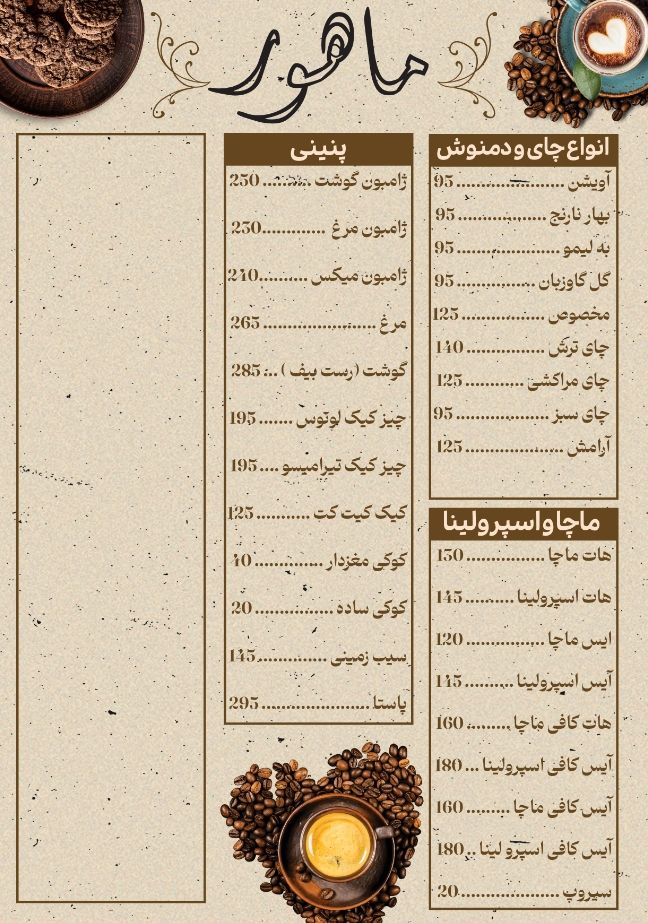 ماهور
انواع چای و دمنوش
آویشن ...................... 95
بهار نارنج .................. 95
به لیمو ..................... 95
گل گاوزبان ................ 95
مخصوص ................. 125
چای ترش ................ 140
چای مراکشی ............ 125
چای سبز ................... 95
آرامش .................... 125
ماچا و اسپرولینا
هات ماچا ................ 130
هات اسپرولینا .......... 145
ایس ماچا ................ 120
آیس اسپرولینا .......... 145
هات کافی ماچا ......... 160
آیس کافی اسپرولینا ... 180
آیس کافی ماچا ......... 160
آیس کافی اسپرو لینا .. 180
سیروپ .................... 20
پنینی
ژامبون گوشت .......... 250
ژامبون مرغ ............. 230
ژامبون میکس .......... 240
مرغ ....................... 265
گوشت (رست بیف ) ... 285
چیز کیک لوتوس ....... 195
چیز کیک تیرامیسو .... 195
کیک کیت کت ........... 125
کوکی مغزدار .............. 40
کوکی ساده ................ 20
سیب زمینی .............. 145
پاستا ...................... 295